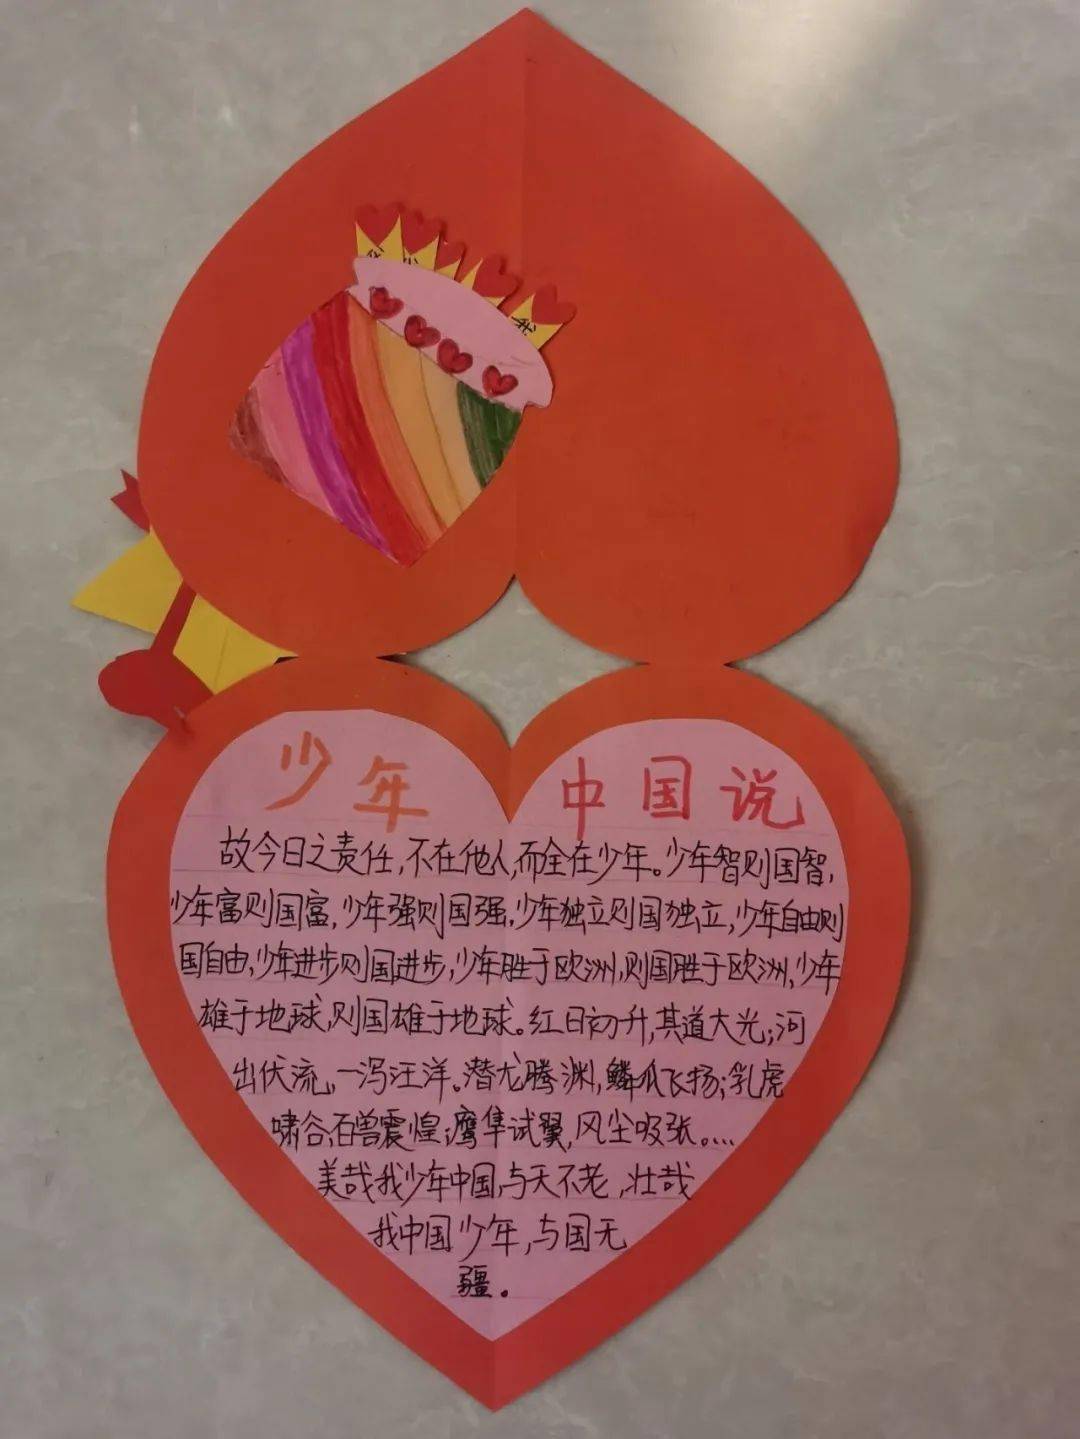 我
少年中国说
故今日之责任,不在他人,而全在少年。少年智则国智,
少年富则国富,少年强则国强,少年独立则国独立,少年自由则
国自由,少年进步则国进步,少年胜于欧洲,则国胜于欧洲,少年
雄于地球,则国雄于地球。红日初升,其道大光;河
出伏流,一泻汪洋。潜龙腾渊,鳞爪飞扬;乳虎
啸谷;百兽震煌;鹰隼试翼,风尘吸张。...
美哉我少年中国,与天不老,壮哉
我中国少年,与国无
疆。